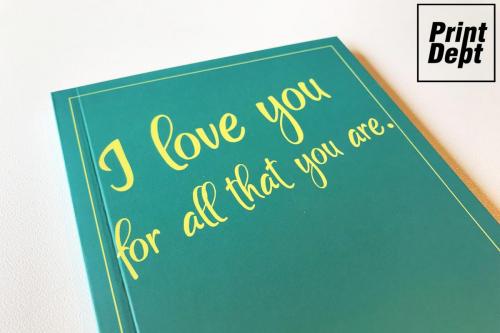 Print
Dept
I love you
for all that you are.